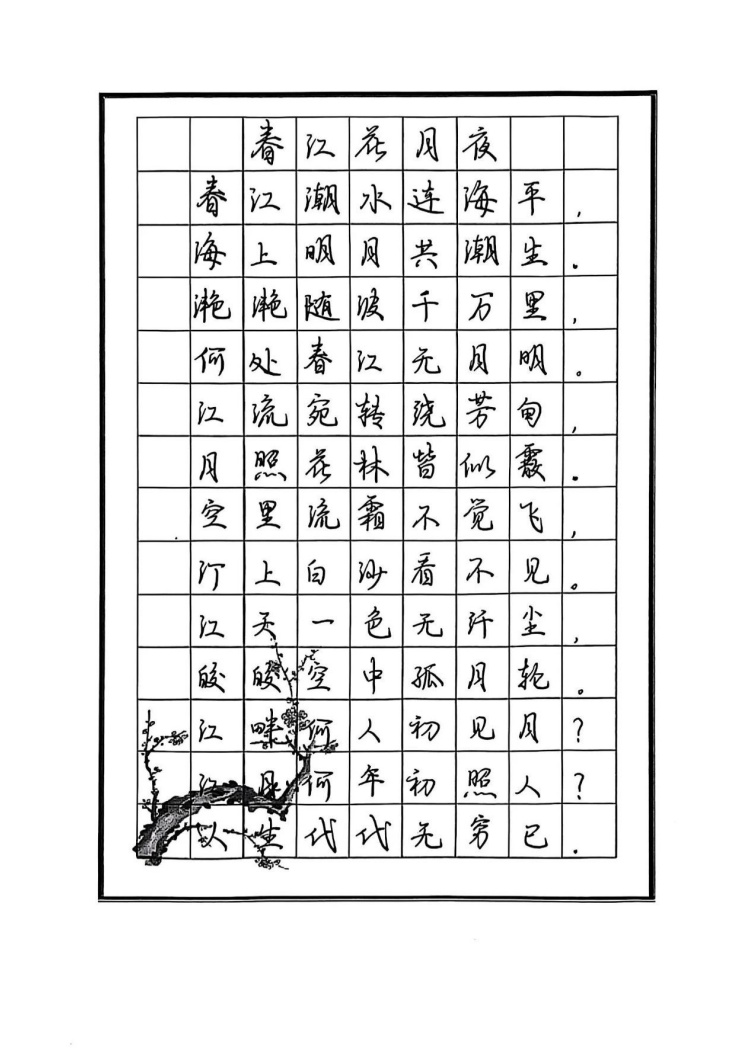 春江花月夜
春江潮水连海平,
海上明月共潮生.
滟滟随波千万里,
何处春江无月明。
江流宛转绕芳甸,
月照花林皆似霰.
空里流霜不觉飞,
汀上白沙看不见。
江天一色无纤尘,
皎皎空中孤月轮。
江畔何人初见月?
江月何年初照人?
人生代代无穷已.